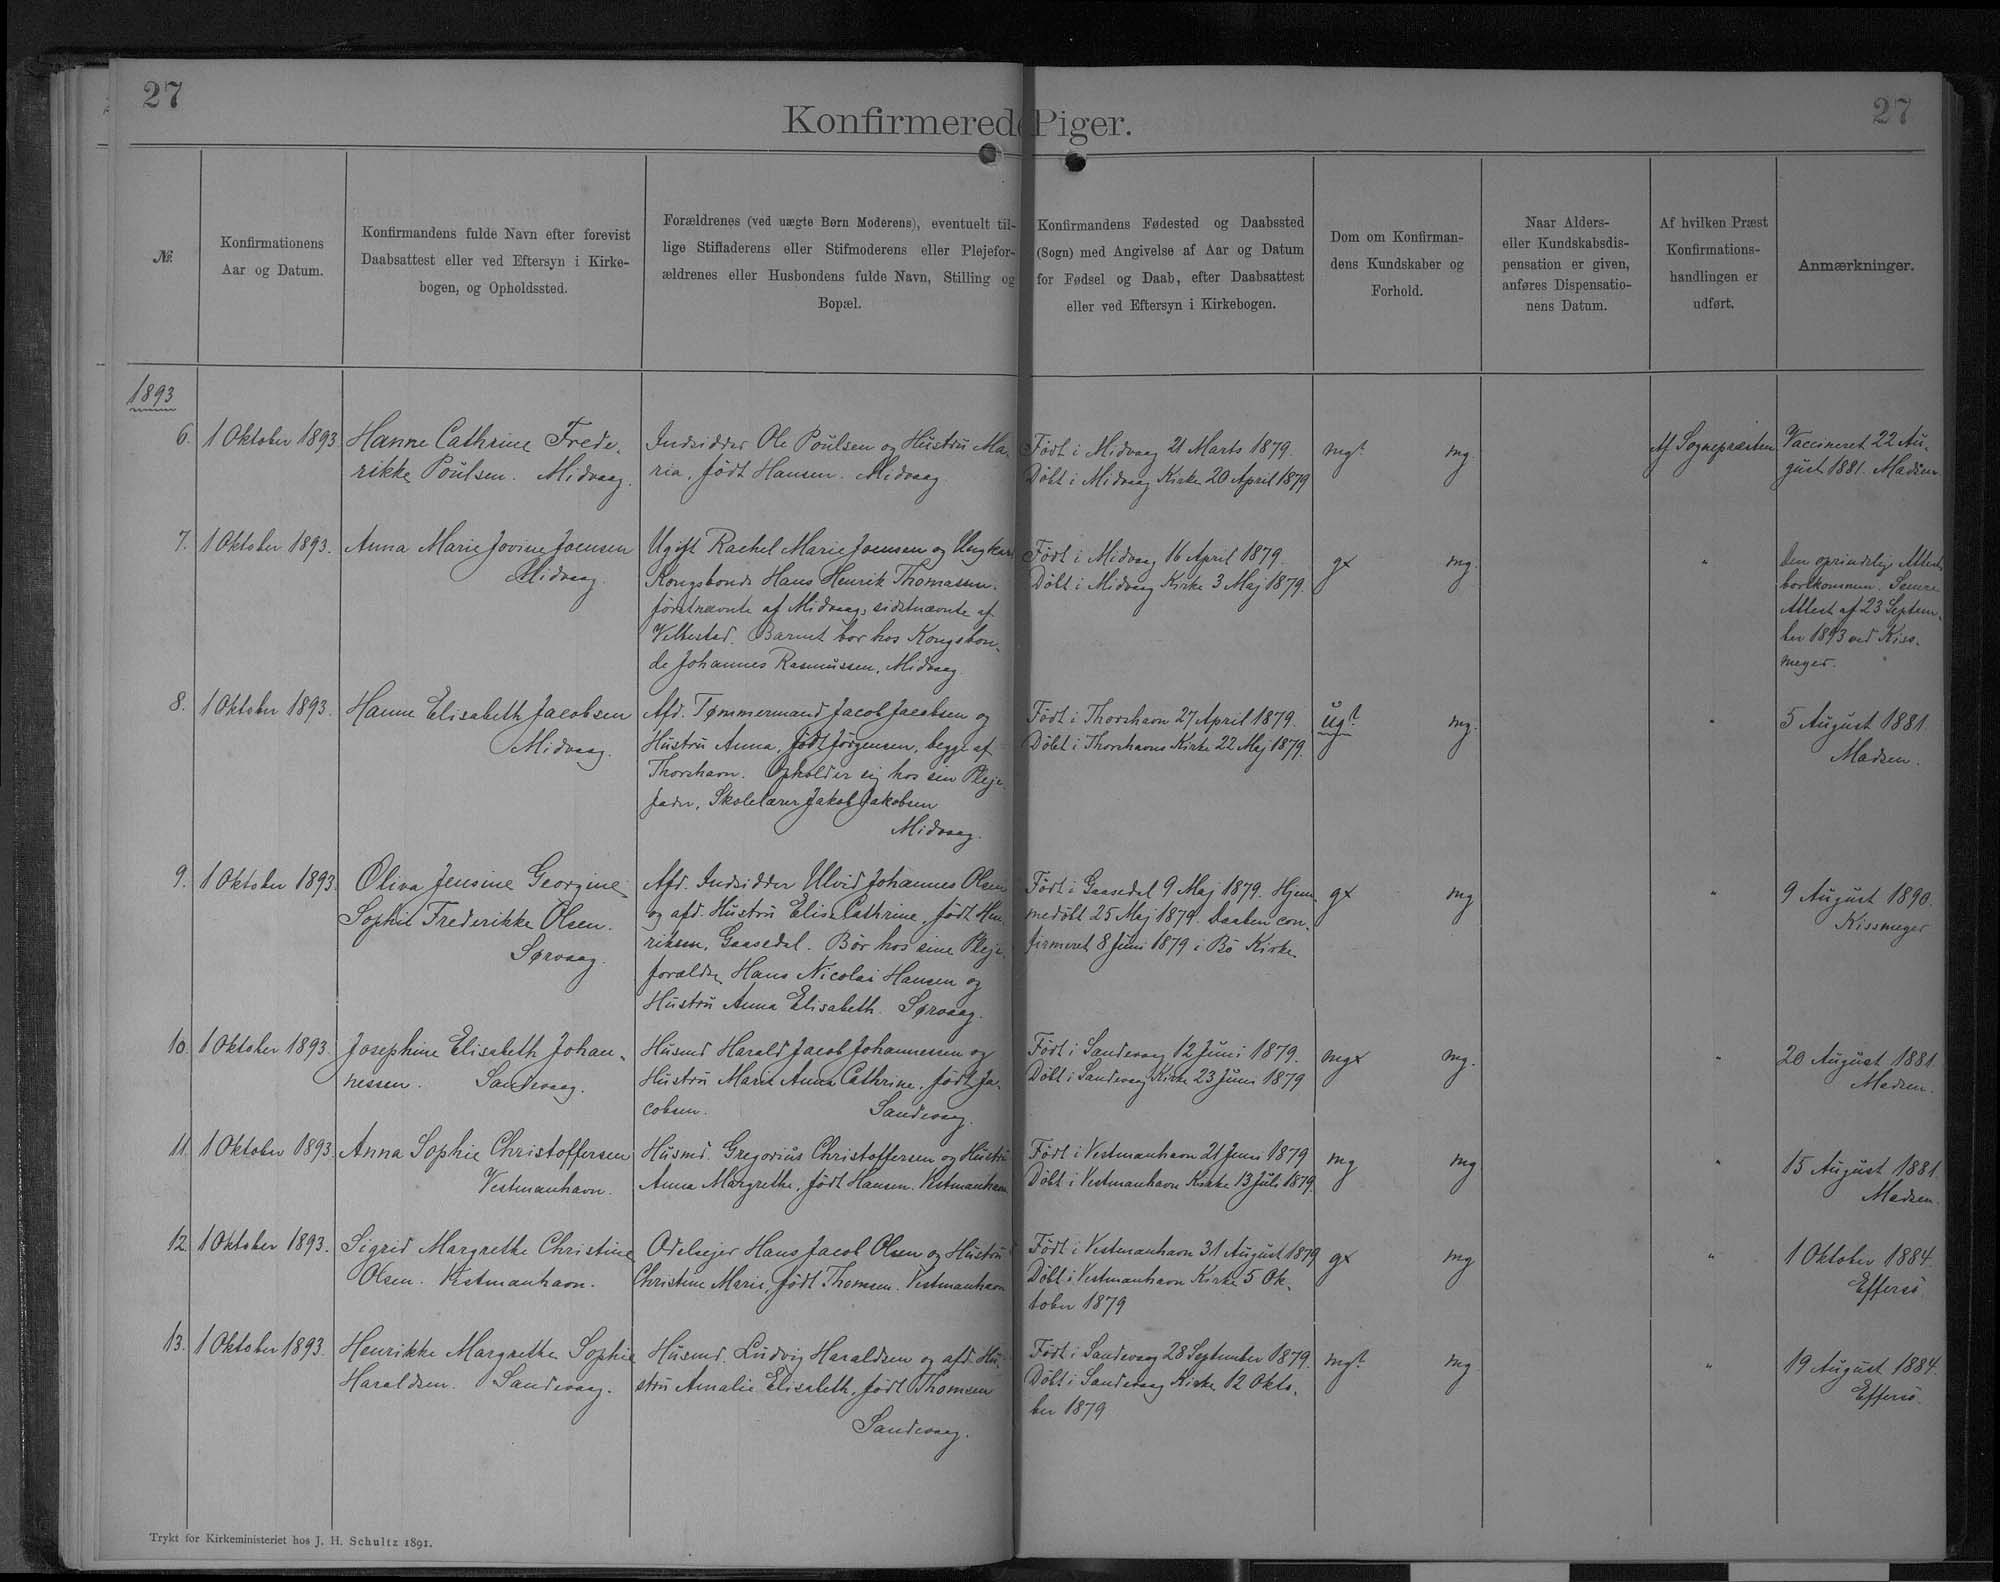 27
27
Konfirmerede Piger.
№
Konfirmationens
Aar og Datum.
Konfirmandens fulde Navn efter forevist
Daabsattest eller ved Eftersyn i Kirke-
bogen, og Opholdssted.
Forældrenes (ved uægte Børn Moderens), eventuelt til-
lige Stiffaderens eller Stifmoderens eller Plejefor-
ældrenes eller Husbondens fulde Navn, Stilling og
Bopæl.
Konfirmandens Fødested og Daabssted
(Sogn) med Angivelse af Aar og Datum
for Fødsel og Daab, efter Daabsattest
eller ved Eftersyn i Kirkebogen.
Dom om Konfirman-
dens Kundskaber og
Forhold.
Naar Alders-
eller Kundskabsdis-
pensation er given,
anføres Dispensatio-
nens Datum.
Af hvilken Præst
Konfirmations-
handlingen er
udført.
Anmærkninger.
1893
6.
1 Oktober 1893
Hanne Cathrine Frede-
rikke Poulsen. Midvaag.
Indsidder Ole Poulsen og Hustru Ma-
ria, født Hansen. Midvaag
Født i Midvaag 21 Marts 1879.
Døbt i Midvaag Kirke 20 April 1879
mg?
mg.
Af Sognepræsten
Vaccineret 22 Au-
gust 1881. Madsen
7.
1 Oktober 1893.
Anna Marie Jovine Joensen
Midvaag.
Ugift Rachel Marie Joensen og Ungkarl
Kongsbonde Hans Henrik Thomassen.
førstnævnte af Midvaag, sidstnævnte af
Velbestad. Barnet bor hos Kongsbon-
de Johannes Rasmussen, Midvaag.
Født i Midvaag 16 April 1879.
Døbt i Midvaag Kirke 3 Maj 1879.
gx
mg.
"
Den oprindelige Attest
bortkommen. Senere
Attest af 23 Septem-
ber 1893 ved Kiss-
meyer.
8.
1 Oktober 1893.
Hanne Elisabeth Jacobsen
Midvaag.
Afd. Tømmermand Jacob Jacobsen og
Hustru Anna, født Jørgensen, begge af
Thorshavn. Opholder sig hos sin Pleje-
fader, Skolelærer Jakob Jakobsen
Midvaag.
Født i Thorshavn 27 April 1879.
Døbt i Thorshavns Kirke 22 Maj 1879.
ug?
mg.
"
5 August 1881.
Madsen.
9.
1 Oktober 1893.
Oliva Jensine Georgine
Sophie Frederikke Olsen.
Sørvaag.
Afd. Indsidder Ulvid Johannes Olsen
og afd. Hustru Elise Cathrine, født Hen-
riksen, Gaasedal. Bor hos sine Pleje-
forældre Hans Nicolai Hansen og
Hustru Anna Elisabeth. Sørvaag.
Født i Gaasedal 9 Maj 1879. Hjem-
medøbt 25 Maj 1879. Daaben con-
firmeret 8 Juni 1879 i Bø Kirke.
gx
mg
"
9 August 1890.
Kissmeyer
10.
1 Oktober 1893.
Josephine Elisabeth Johan-
nessen. Sandevaag.
Husmd Harald Jacob Johannessen og
Hustru Maria Anna Cathrine, født Ja-
cobsen.
Sandevaag.
Født i Sandevaag 12 Juni 1879.
Døbt i Sandevaag Kirke 23 Juni 1879
mgx
mg.
"
20 August 1881.
Madsen.
11.
1 Oktober 1893.
Anna Sophie Christoffersen
Vestmanhavn.
Husmd. Gregorius Christoffersen og Hustru
Anna Margrethe, født Hansen. Vestmanhavn
Født i Vestmanhavn 21 Juni 1879
Døbt i Vestmanhavn Kirke 13 Juli 1879.
mg
mg
"
15 August 1881
Madsen.
12.
1 Oktober 1893.
Sigrid Margrethe Christine
Olsen. Vestmanhavn.
Odelsejer Hans Jacob Olsen og Hustru
Christine Marie, født Thomsen. Vestmanhavn
Født i Vestmanhavn 31 August 1879
Døbt i Vestmanhavn Kirke 5 Ok-
tober 1879
gx
mg
"
1 Oktober 1884.
Effersø.
13.
1 Oktober 1893.
Henrikke Margrethe Sophie
Haraldsen. Sandevaag.
Husmd. Ludvig Haraldsen og afd. Hu-
stru Amalie Elisabeth, født Thomsen
Sandevaag.
Født i Sandevaag 28 September 1879.
Døbt i Sandevaag Kirke 12 Okto-
ber 1879
mg?
mg
"
19 August 1884.
Effersø.
Trykt for Kirkeministeriet hos J. H. Schultz 1891.